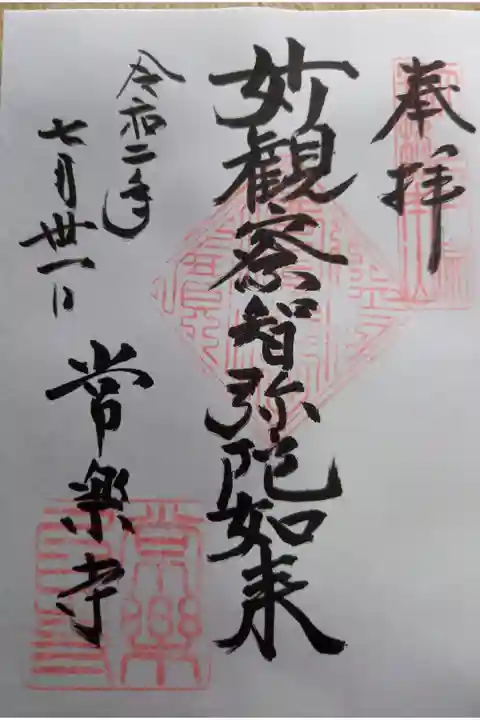 奉拝
妙観察智弥陀如来
令和二年
七月卅一日
常楽寺